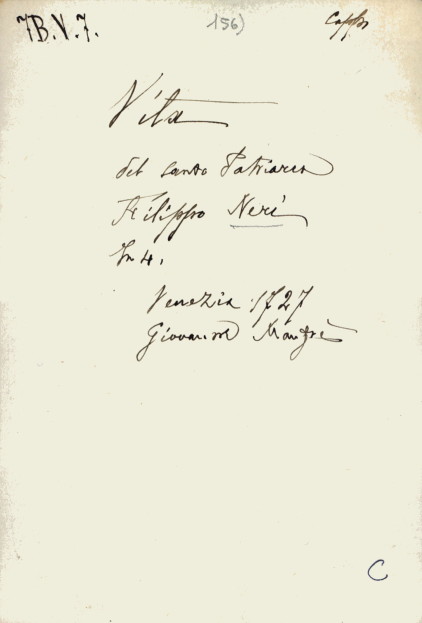 7B.V.7.
156)
Vita
del santo Patriarca
Filippo Neri
In 4.
Venezia 1727
Giovanni Manfrè
C